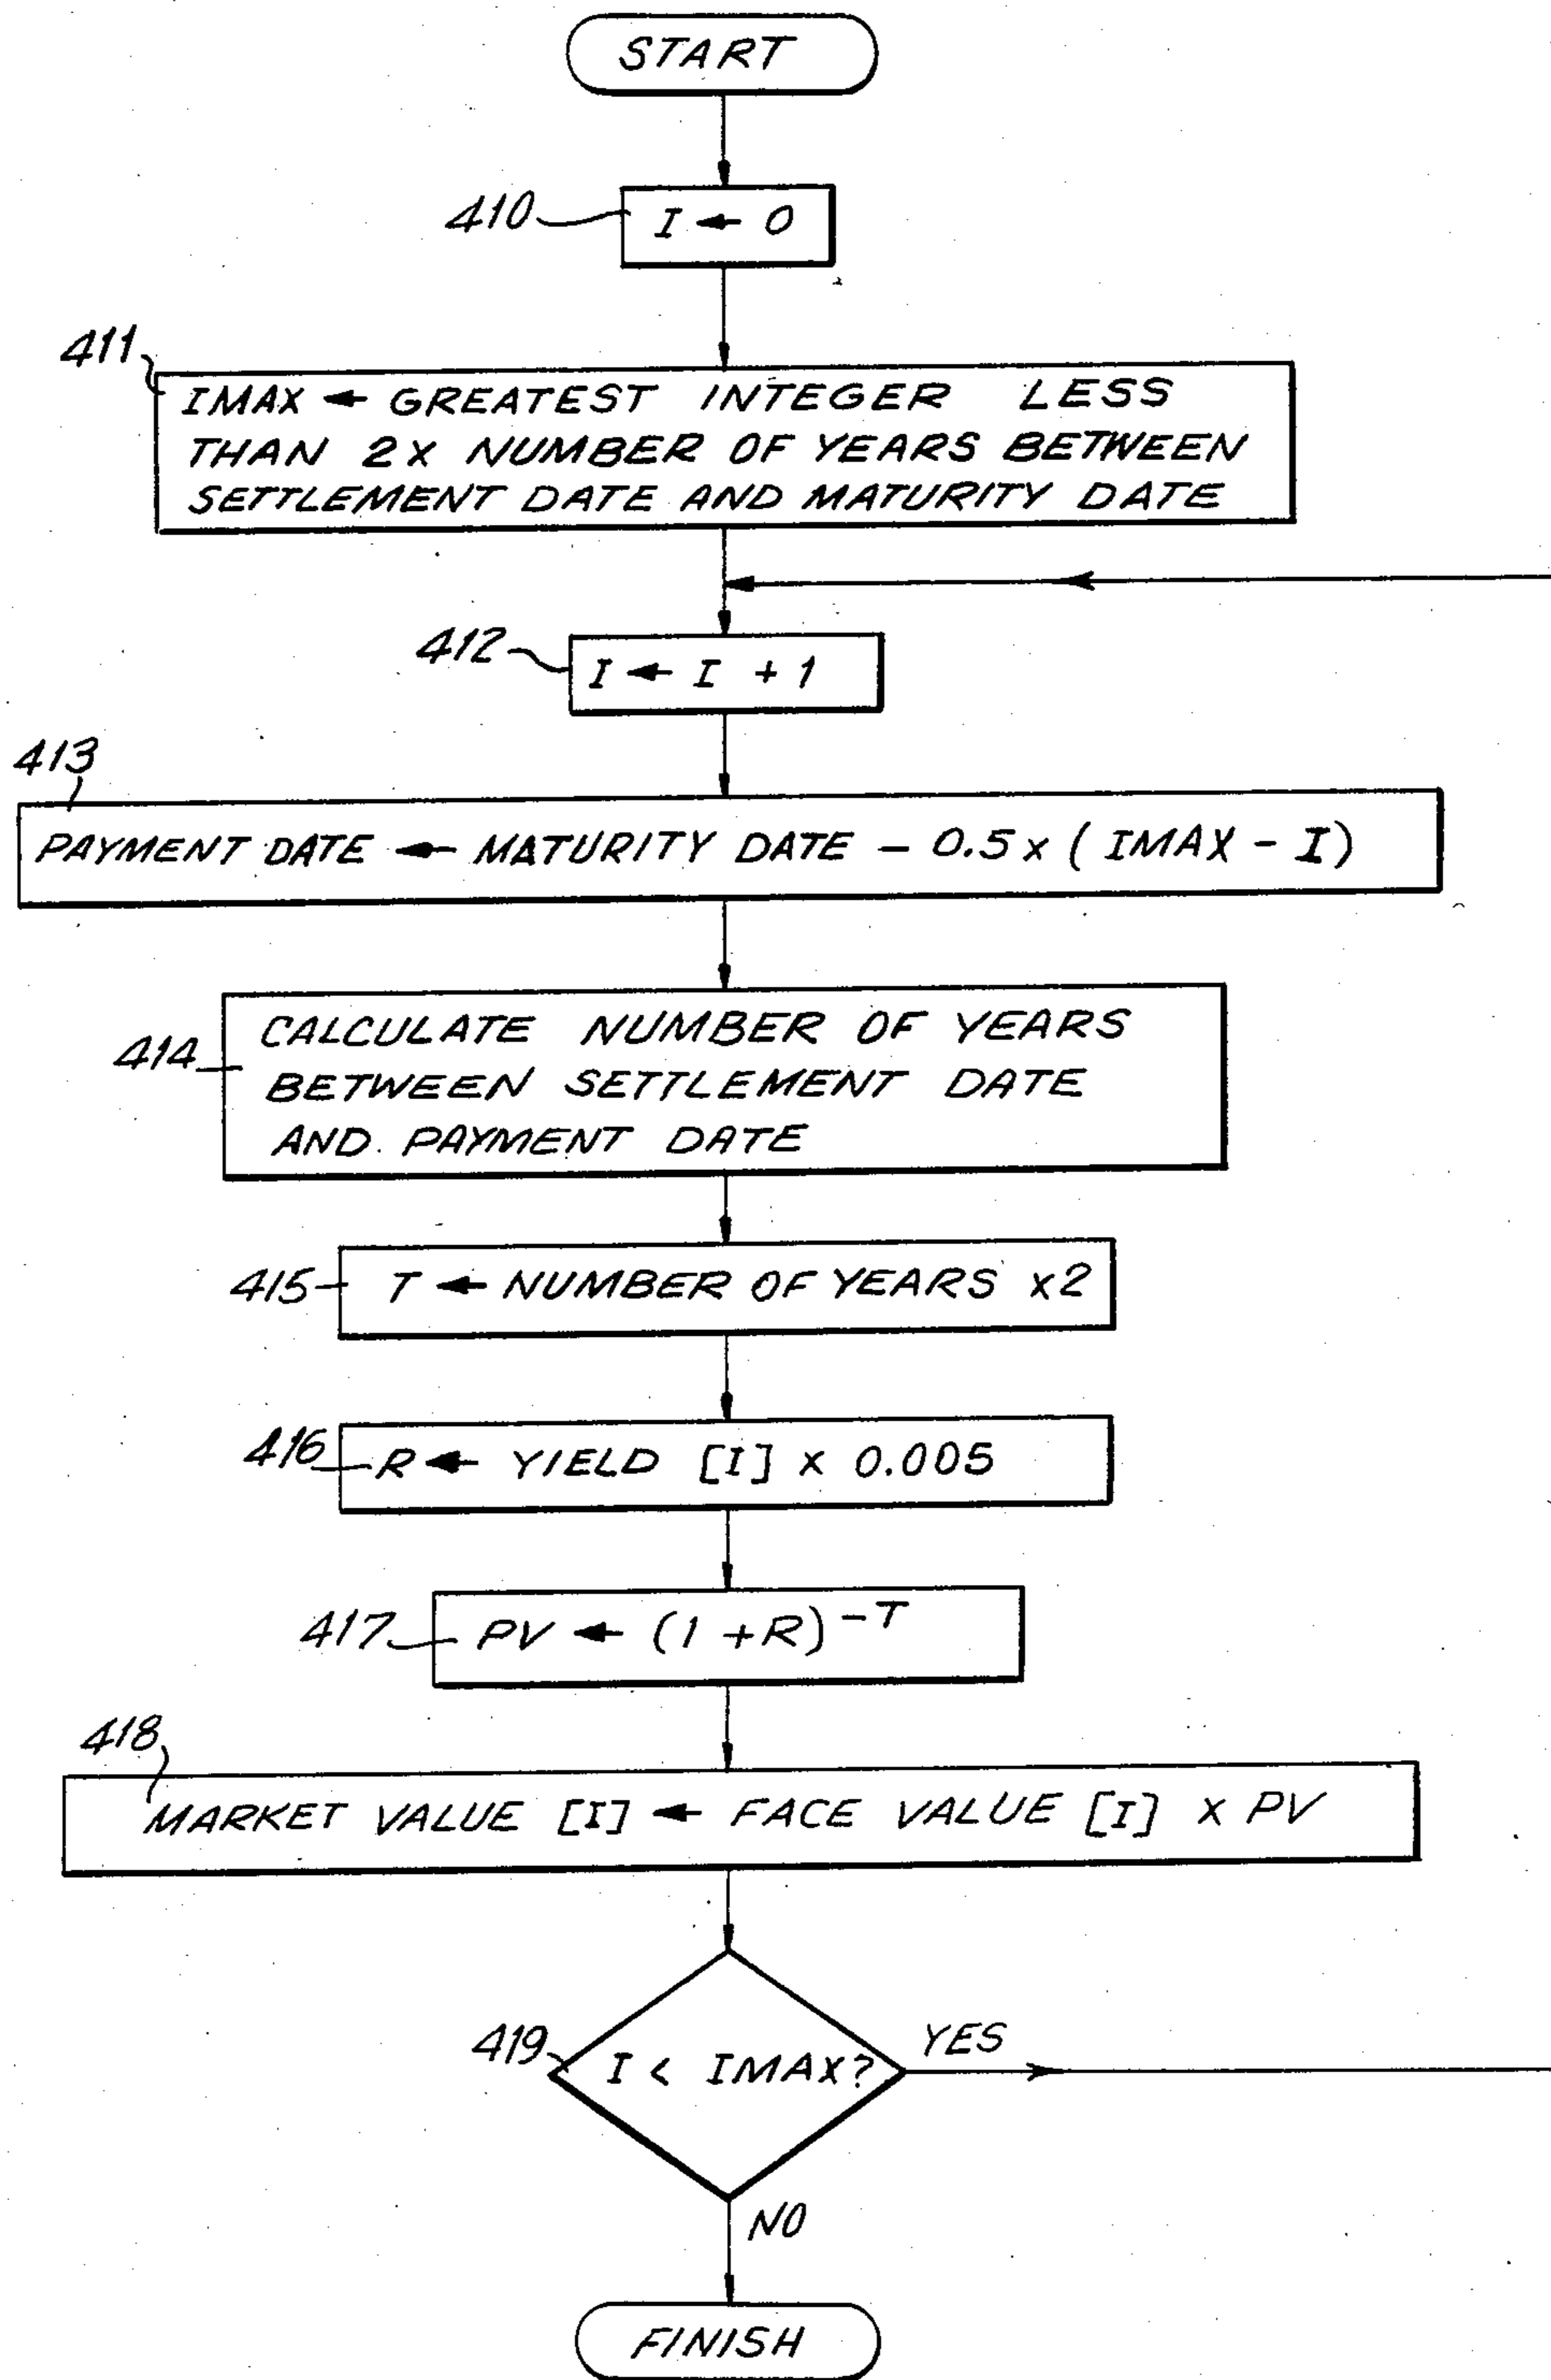 START
410
I ← 0
411
IMAX ← GREATEST INTEGER LESS
THAN 2X NUMBER OF YEARS BETWEEN
SETTLEMENT DATE AND MATURITY DATE
412
I ← I + 1
413
PAYMENT DATE ← MATURITY DATE - 0.5 x ( IMAX - I)
414
CALCULATE NUMBER OF YEARS
BETWEEN SETTLEMENT DATE
AND PAYMENT DATE
415
T ← NUMBER OF YEARS x2
416
R ← YIELD [I] x 0.005
417
PV ← (1 +R)^-T
418
MARKET VALUE [I] ← FACE VALUE [I] x PV
419
I < IMAX?
YES
NO
FINISH